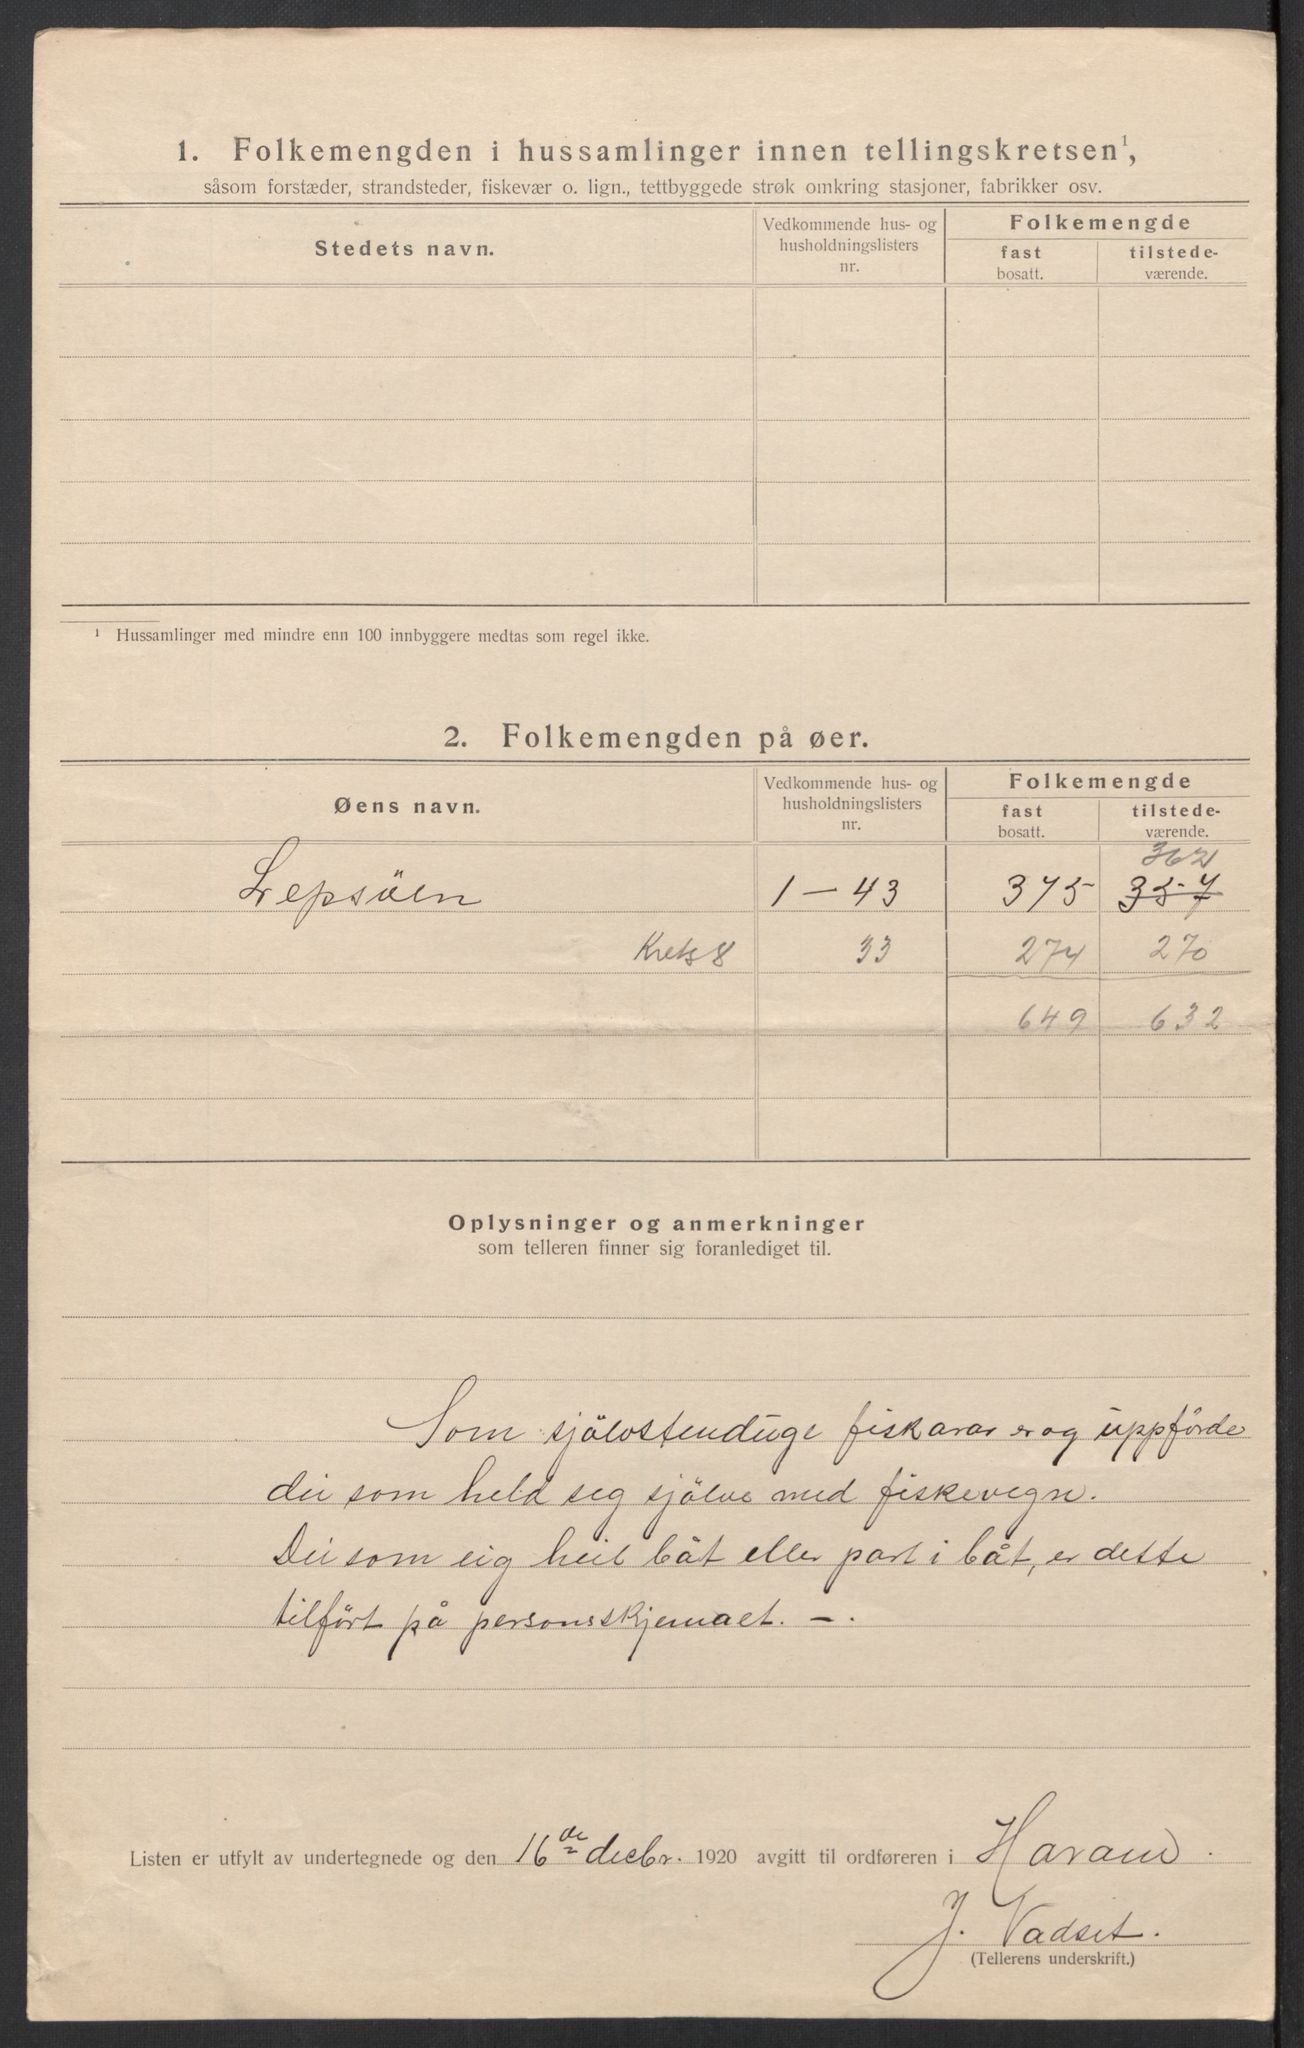 1. Folkemengden i hussamlinger innen tellingskretsen¹,
såsom forstæder, strandsteder, fiskevær o. lign., tettbyggede strøk omkring stasjoner, fabrikker osv.
Stedets navn.
Vedkommende hus- og
husholdningslisters
nr.
Folkemengde
fast
bosatt.
tilstede-
værende.
¹ Hussamlinger med mindre enn 100 innbyggere medtas som regel ikke.
2. Folkemengden på øer.
Øens navn.
Vedkommende hus- og
husholdningslisters
nr.
Folkemengde
fast
bosatt.
tilstede-
værende.
362
Lepsöen 1 - 43 375 357
Krets 8 33 274 270
649 632
Oplysninger og anmerkninger
som telleren finner sig foranlediget til.
Som sjölvstenduge fiskarar er og uppförde
dei som held seg sjölve med fiskevegn.
Dei som eig heil båt eller part i båt, er dette
tilfört på personsskjemaet. -.
Listen er utfylt av undertegnede og den 16de decbr. 1920 avgitt til ordføreren i Haram.
J. Vadset.
(Tellerens underskrift.)